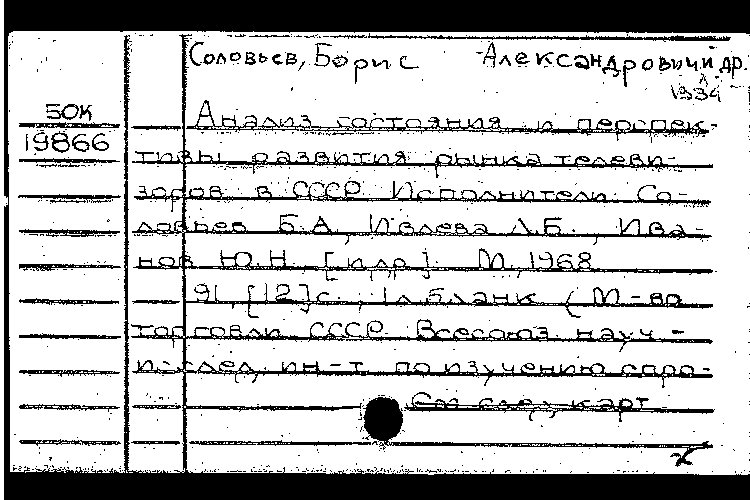 Соловьев, Борис Александрович и др.
50К
19866
Анализ состояния и перспек-
тивы развития рынка телеви-
зоров в СССР. Исполнители: Со-
ловьев Б.А., Ивлева Л.Б., Ива-
нов Ю.Н. [и др.]. М., 1968
91, [12] с., 1 л. бланк (М-во
торговли СССР. Всесоюз. науч-
исслед. ин-т по изучению спро-
См. след. карт.